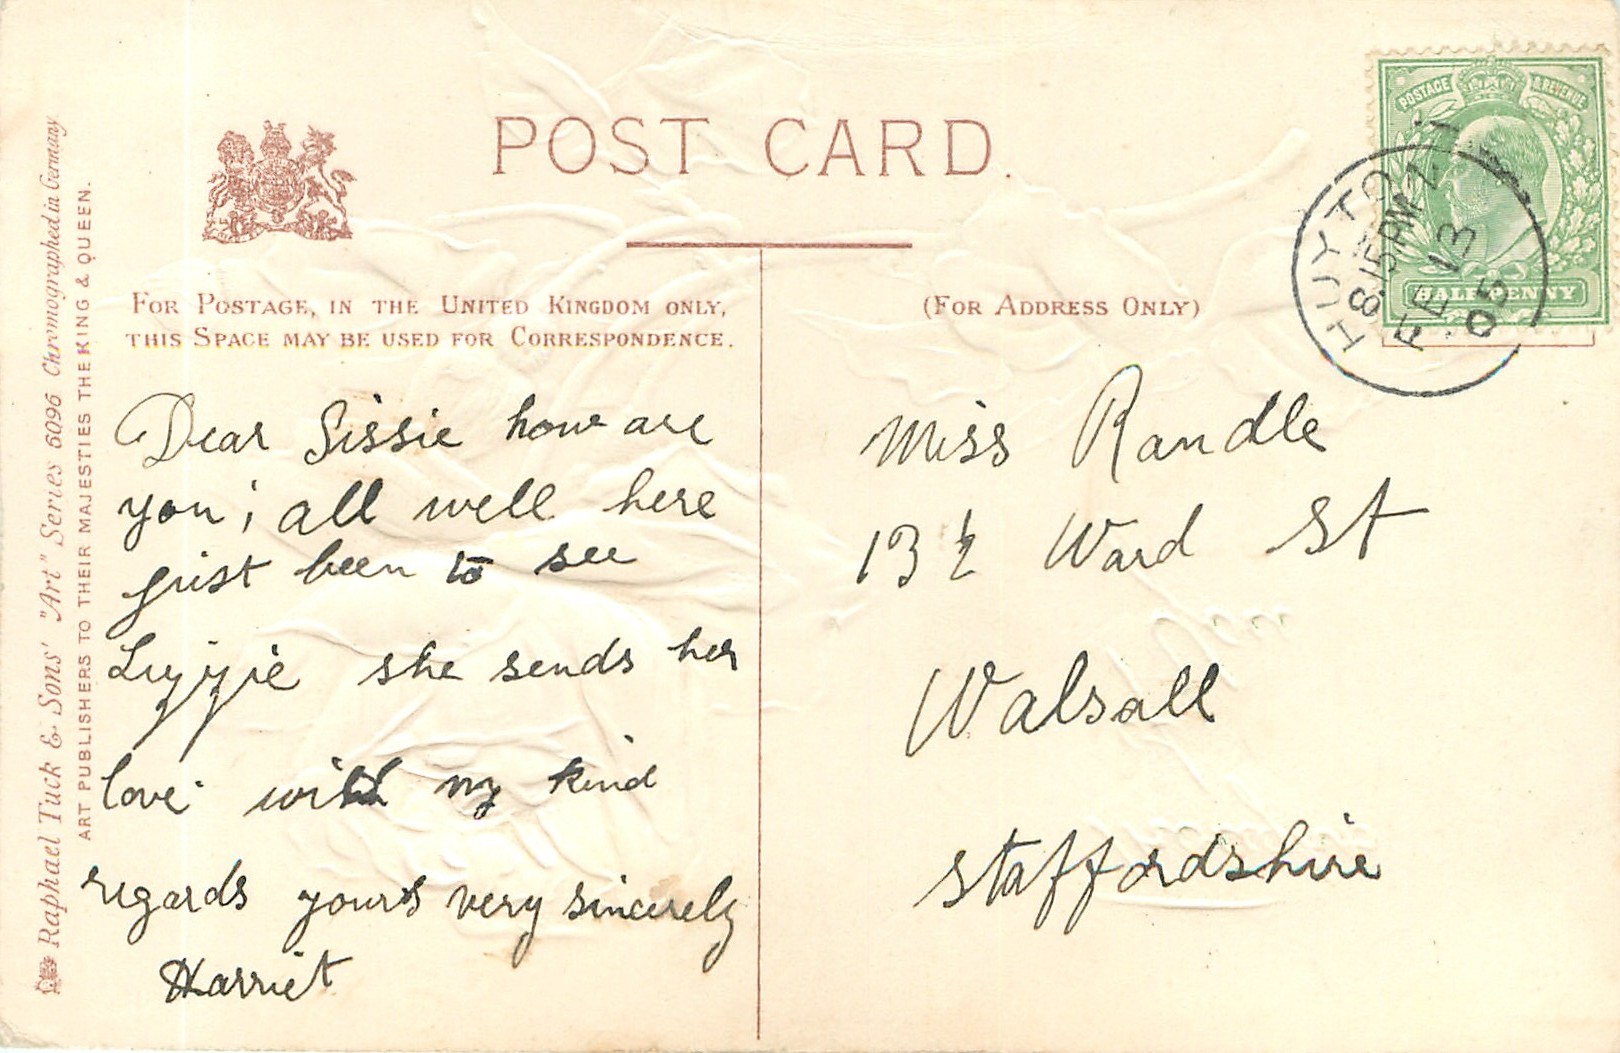 POST CARD.
FOR POSTAGE, IN THE UNITED KINGDOM ONLY,
THIS SPACE MAY BE USED FOR CORRESPONDENCE.
(FOR ADDRESS ONLY)
Raphael Tuck & Sons' "Art" Series 6096 Chromographed in Germany
ART PUBLISHERS TO THEIR MAJESTIES THE KING & QUEEN.
POSTAGE & REVENUE
HALFPENNY
HUYTON
8.15PM
FE 13
05
Dear Sissie how are
you; all well here
just been to see
Lizzie she sends her
love with my kind
regards yours very sincerely
Harriet
Miss Randle
13½ Ward St
Walsall
Staffordshire